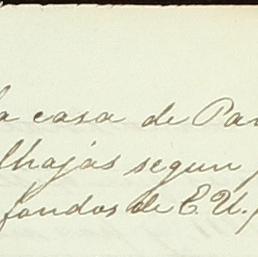 la casa de Par
lhajas segun
fondos de E.U.